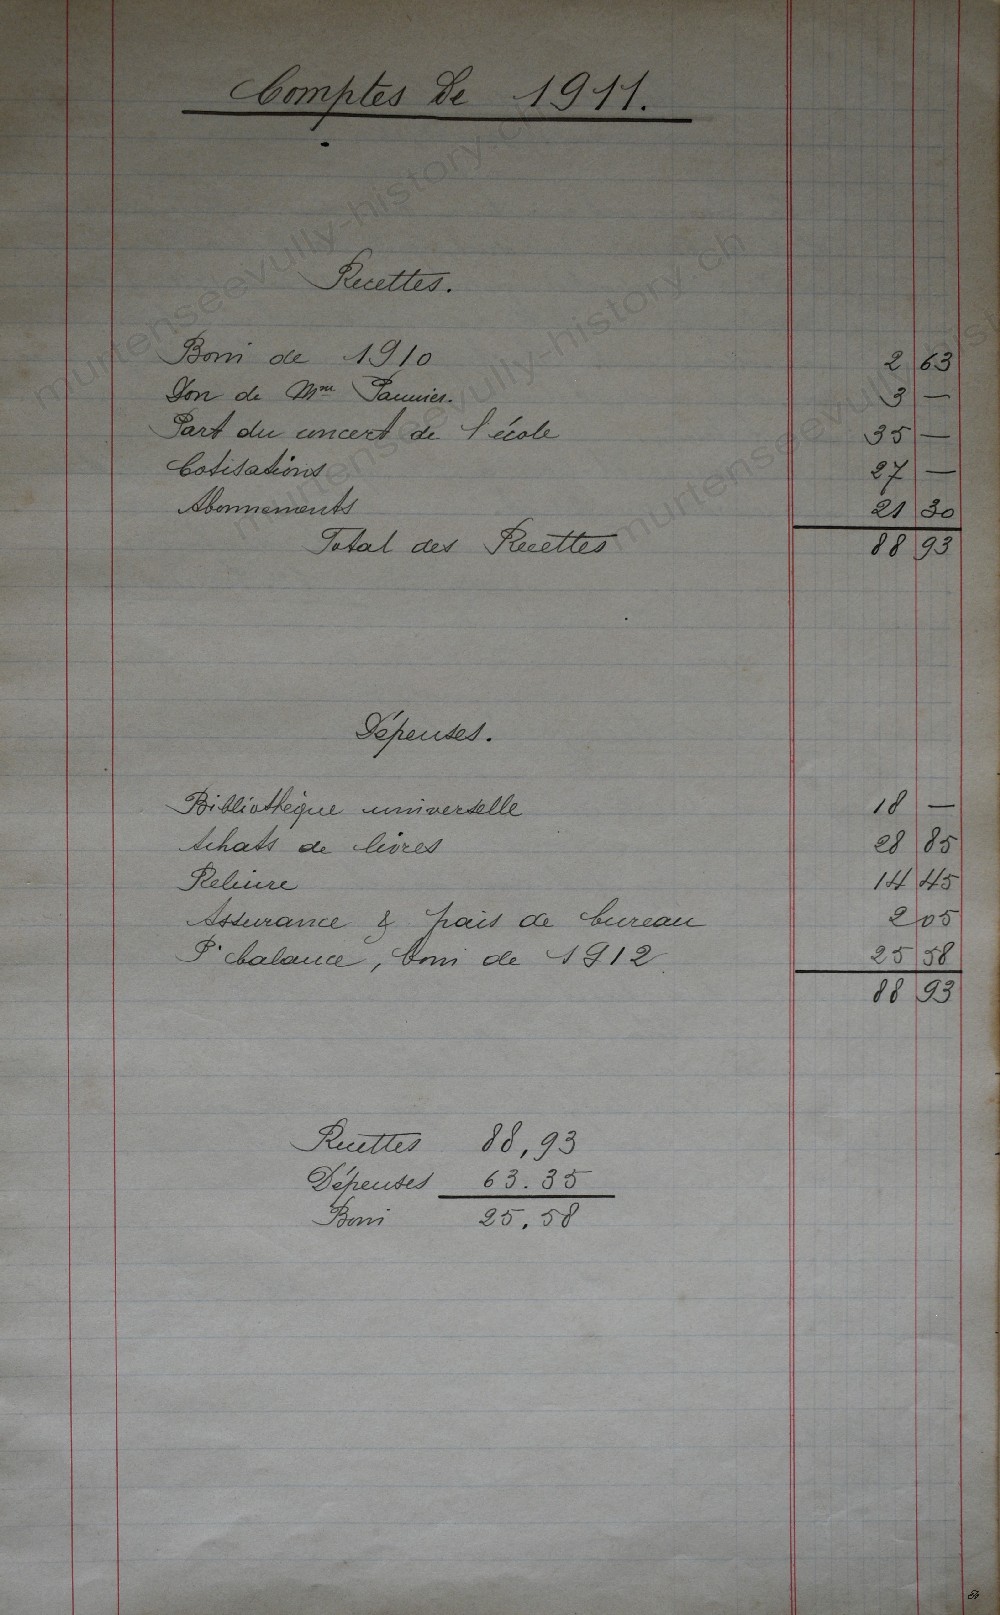 Comptes de 1911.
Recettes.
Boni de 1910 2 63
Don de Mme Pannier. 3 —
Part du concert de l'école 35 —
Cotisations 27 —
Abonnements 21 30
Total des Recettes 88 93
Dépenses.
Bibliothèque universelle 18 —
Achats de livres 28 85
Reliure 14 45
Assurance & frais de bureau 2 05
Pr balance, boni de 1912 25 58
88 93
Recettes 88,93
Dépenses 63.35
Boni 25.58
murtenseevully-history.ch
murtenseevully-history.ch
murtenseevully-hist